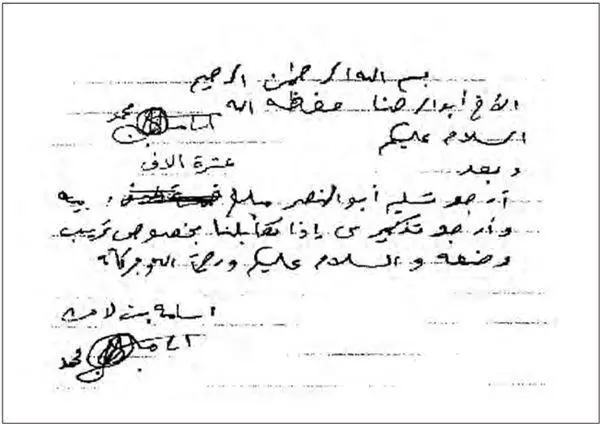 بسم الله الرحمن الرحيم
الأخ أبو الرضا حفظه الله
أسامة بن محمد
السلام عليكم
وبعد
عشرة الاف
أرجو تسليم أبو النصر مبلغ
وأرجو تذكيري إذا تقابلنا بخصوص ترتيب
وضعه والسلام عليكم ورحمة الله وبركاته
اسامة بن لادن
أسامة بن محمد